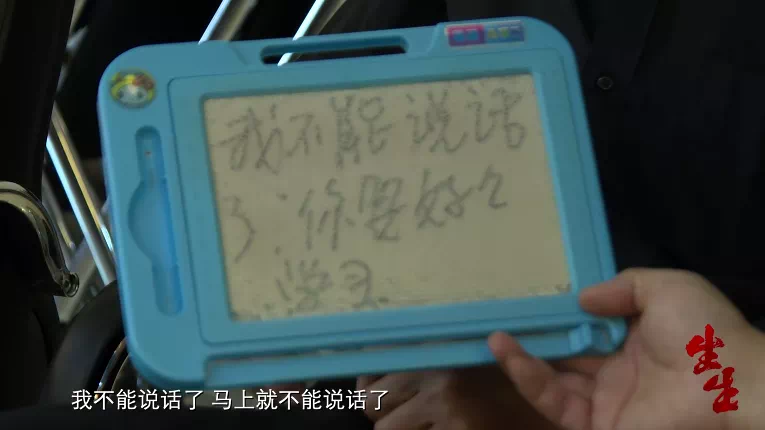 我不能说话
了.你要好々
学习
我不能说话了 马上就不能说话了
生
生